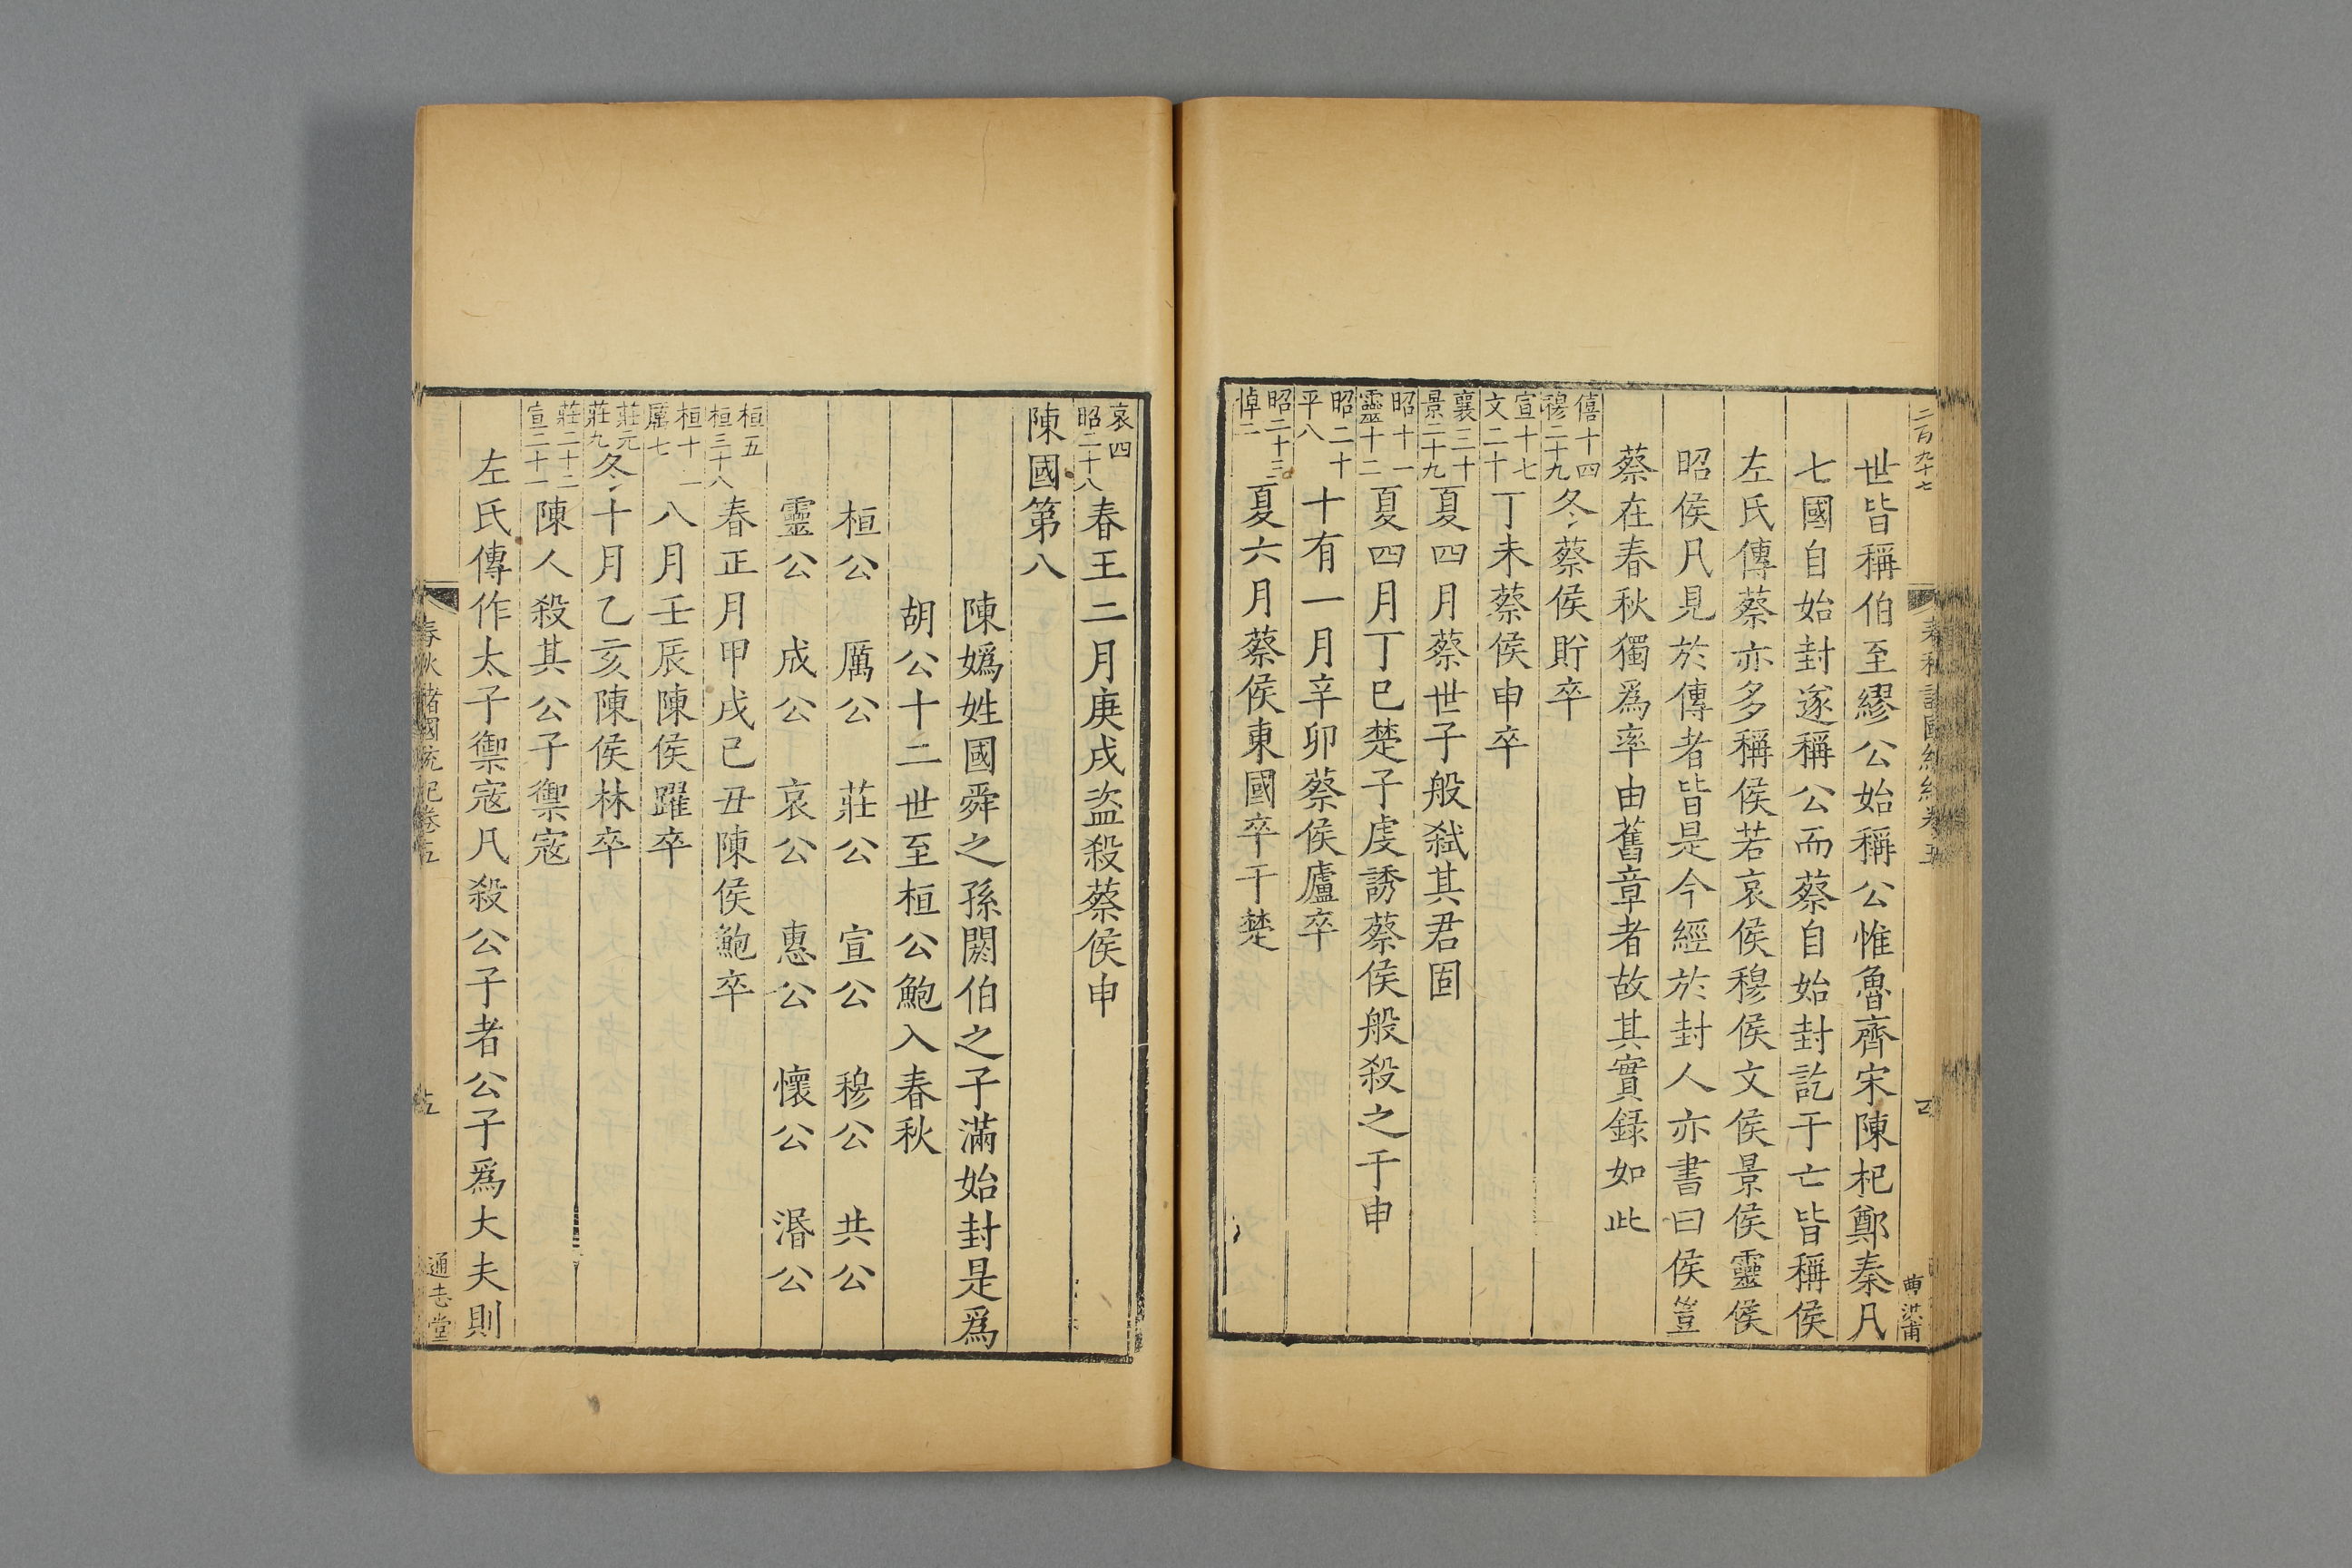 二百九十七
春秋諸國統紀卷五
四
曹洪甫
世皆稱伯至繆公始稱公惟魯齊宋陳杞鄭秦凡
七國自始封遂稱公而蔡自始封訖于亡皆稱侯
左氏傳蔡亦多稱侯若哀侯穆侯文侯景侯靈侯
昭侯凡見於傳者皆是今經於封人亦書曰侯豈
蔡在春秋獨爲率由舊章者故其實録如此
僖十四
穆二十九
冬蔡侯貯卒
宣十七
文二十
丁未蔡侯申卒
襄三十
景二十九
夏四月蔡世子般弒其君固
昭十一
靈十二
夏四月丁巳楚子虔誘蔡侯般殺之于申
昭二十
平八
十有一月辛卯蔡侯廬卒
昭二十三
悼二
夏六月蔡侯東國卒于楚
哀四
昭二十八
春王二月庚戌盜殺蔡侯申
陳國第八
陳嬀姓國舜之孫閼伯之子滿始封是爲
胡公十二世至桓公鮑入春秋
桓公 厲公 莊公 宣公 穆公 共公
靈公 成公 哀公 惠公 懷公 湣公
桓五
桓三十八
春正月甲戌己丑陳侯鮑卒
桓十二
厲七
八月壬辰陳侯躍卒
莊元
莊九
冬十月乙亥陳侯林卒
莊二十二
宣二十一
陳人殺其公子禦寇
左氏傳作太子禦寇凡殺公子者公子爲大夫則
春秋諸國統紀卷五
五
通志堂